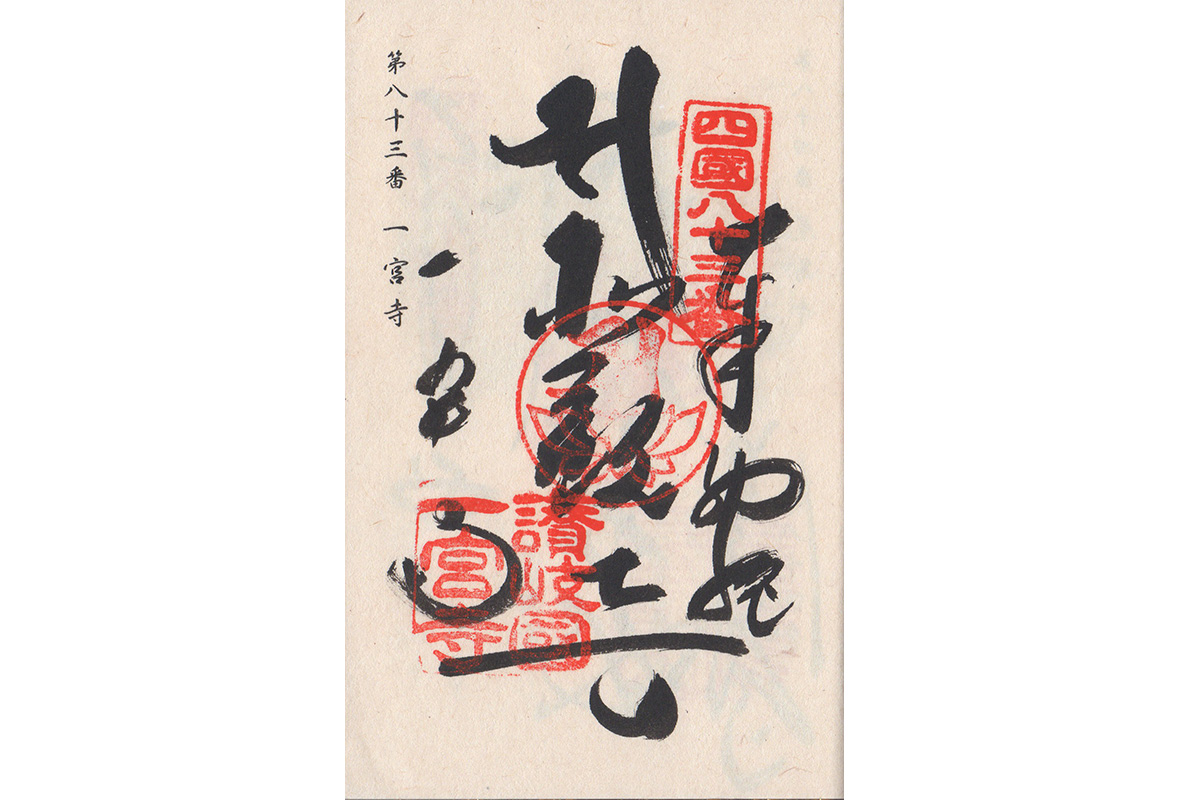 四國八十三番
奉納経
讃岐國
一宮寺
一宮寺
第八十三番 一宮寺